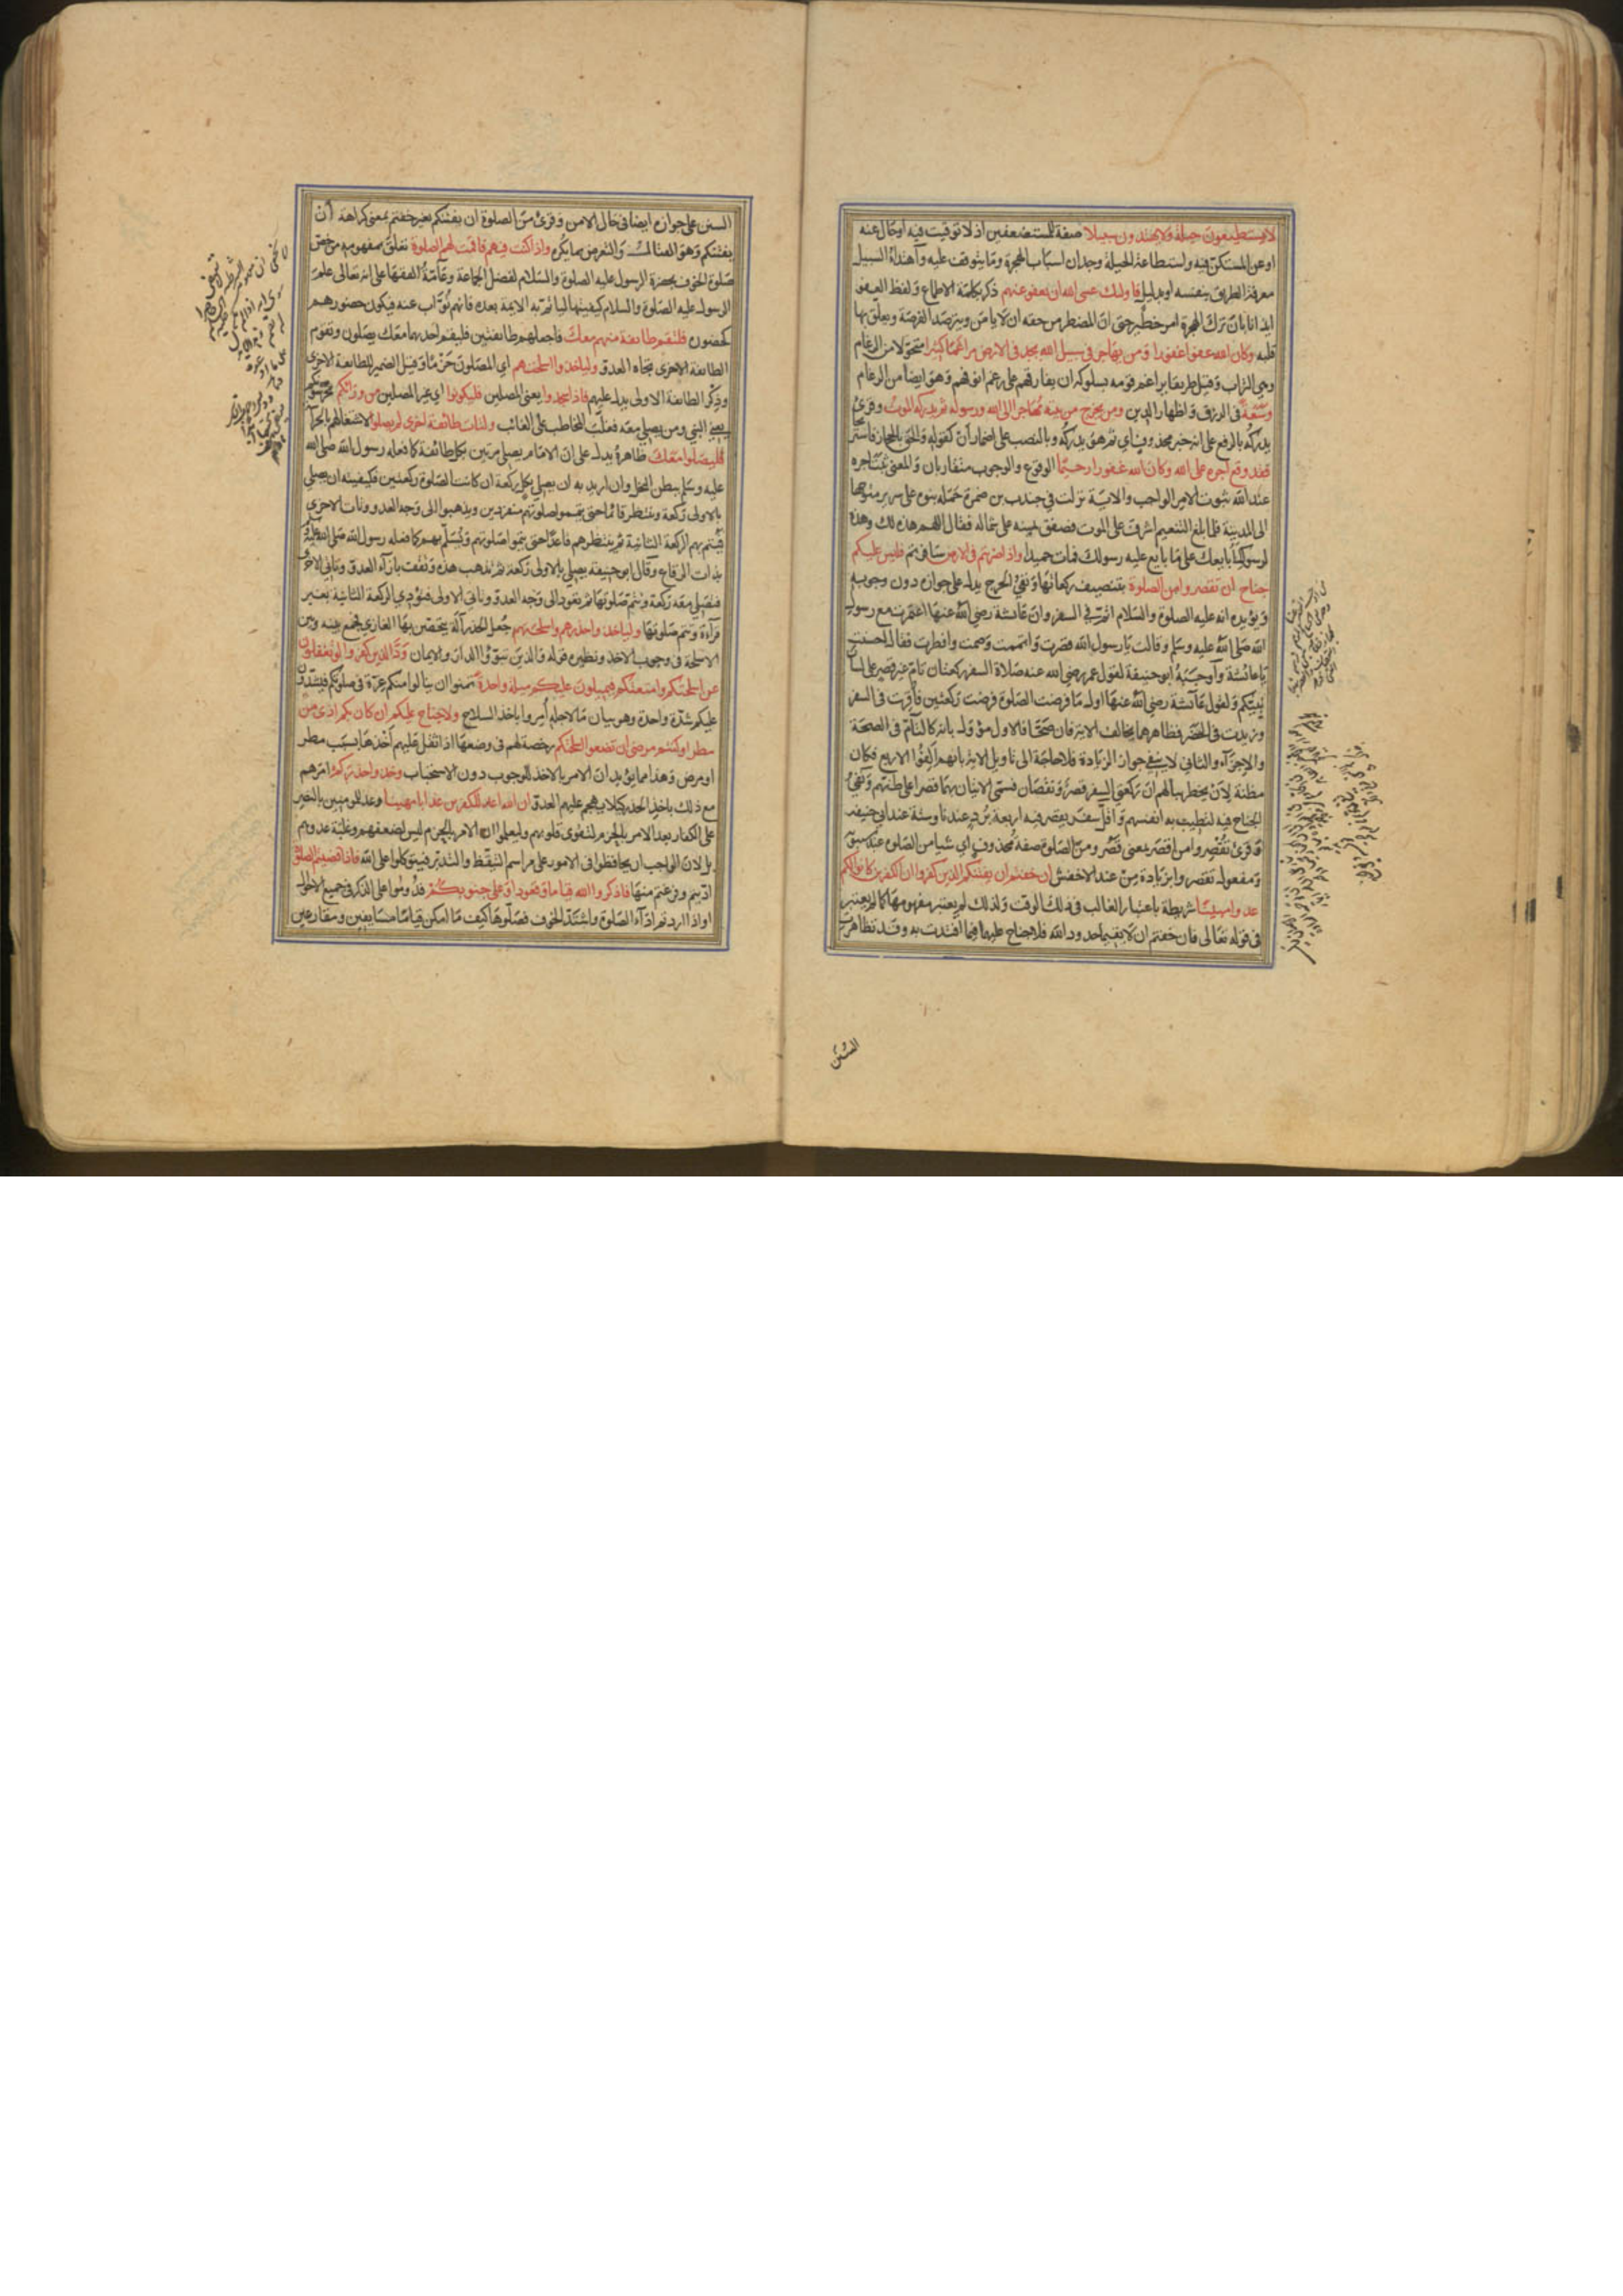 لا يستطيعون حيلة ولا يهتدون سبيلا صفة للمستضعفين اذ لا توقيت فيه او حال عنه
او عن المستكن فيه واستطاعة الحيلة وجدان اسباب الهجرة وما يتوقف عليه واهتداء السبيل
معرفة الطريق بنفسه او بدليل فاولئك عسى الله ان يعفو عنهم ذكر بكلمة الاطماع ولفظ العفو
ايذانا بان ترك الهجرة امر خطير حتى ان المضطر من حقه ان لا يامن ويترصد الفرصة ويعلق بها
قلبه وكان الله عفوا غفورا ومن يهاجر في سبيل الله يجد في الارض مراغما كثيرا متحولا من الرغام
وهي التراب وقيل طريقا يراغم قومه بسلوكه ان يفارقهم على رغم انوفهم وهو ايضا من الرغام
وسعة في الرزق واظهار الدين ومن يخرج من بيته مهاجرا الى الله ورسوله ثم يدركه الموت وقرئ
يدركه بالرفع على انه خبر محذوف اي ثم هو يدركه وبالنصب على اضمار ان كقوله والحق بالحجاز فاستر
فقد وقع اجره على الله وكان الله غفورا رحيما الوقوع والوجوب متقاربان والمعنى ثبت اجره
عند الله ثبوت الامر الواجب والاية نزلت في جندب بن ضمرة حمله بنوه على سرير متوجها
الى المدينة فلما بلغ التنعيم اشرف على الموت فصفق يمينه على شماله فقال اللهم هذه لك وهذه
لرسولك ابايعك على ما بايع عليه رسولك فمات حميدا واذا ضربتم في الارض سافرتم فليس عليكم
جناح ان تقصروا من الصلوة بتنصيف ركعاتها ونفي الحرج يدل على جوازه دون وجوبه
ويؤيده انه عليه الصلوة والسلام اتم في السفر وان عائشة رضي الله عنها اعتمرت مع رسول
الله صلى الله عليه وسلم وقالت يا رسول الله قصرت واتممت وصمت وافطرت فقال احسنت
يا عائشة واوجبه ابو حنيفة لقول عمر رضي الله عنه صلاة السفر ركعتان تام غير قصر على لسان
نبيكم ولقول عائشة رضي الله عنها اول ما فرضت الصلوة فرضت ركعتين فاقرت في السفر
وزيدت في الحضر فظاهرهما يخالف الاية فان صحتا فالاول مؤول بانه كالتام في الصحة
والاجزاء والثاني لا ينفي جواز الزيادة فلا حاجة الى تاويل الاية بانهم الفوا الاربع فكان
مظنة لان يخطر ببالهم ان ركعتي السفر قصر ونقصان فسمى الاتيان بهما قصرا على ظنهم ونفي
الجناح فيه لتطيب به انفسهم واقل سفر يقصر فيه اربعة برد عندنا وستة عند ابي حنيفة
وقرئ تقصروا من اقصر بمعنى قصر ومن الصلوة صفة محذوف اي شيا من الصلوة عند سيبويه
ومفعول تقصروا بزيادة من عند الاخفش ان خفتم ان يفتنكم الذين كفروا ان الكفرين كانوا لكم
عدوا مبينا شريطة باعتبار الغالب في ذلك الوقت ولذلك لم يعتبر مفهومها كما لم يعتبر
في قوله تعالى فان خفتم ان لا يقيما حدود الله فلا جناح عليهما فيما افتدت به وقد تظاهرت
السنن
السنن على جوازه ايضا في حال الامن وقرئ من الصلوة ان يفتنكم بغير خفتم بمعنى كراهة ان
يفتنكم وهو القتال والتعرض بما يكره واذا كنت فيهم فاقمت لهم الصلوة تعلق بمفهومه من خص
صلوة الخوف بحضرة الرسول عليه الصلوة والسلام لفضل الجماعة وعامة الفقها على انه تعالى علم
الرسول عليه الصلوة والسلام كيفيتها ليأتم به الايمة بعده فانهم نواب عنه فيكون حضورهم
كحضوره فلتقم طائفة منهم معك فاجعلهم طائفتين فليقم احديهما معك يصلون وتقوم
الطائفة الاخرى تجاه العدو ولياخذوا اسلحتهم اي المصلون حزما وقيل الضمير للطائفة الاخرى
وذكر الطائفة الاولى يدل عليهم فاذا سجدوا يعني المصلين فليكونوا اي غير المصلين من ورائكم يحرسونكم
يعني النبي ومن يصلي معه فغلب المخاطب على الغائب ولتات طائفة اخرى لم يصلوا لاشتغالهم بالحراسة
فليصلوا معك ظاهره يدل على ان الامام يصلي مرتين بكل طائفة كما فعله رسول الله صلى الله
عليه وسلم ببطن النخل وان اريد به ان يصلي بكل ركعة ان كانت الصلوة ركعتين فكيفيته ان يصلي
بالاولى ركعة وينتظر قائما حتى يتموا صلوتهم منفردين ويذهبوا الى وجه العدو وتات الاخرى
فيتم بهم الركعة الثانية ثم ينتظرهم قاعدا حتى يتموا صلوتهم ويسلم بهم كما فعله رسول الله صلى الله عليه وسلم
بذات الرقاع وقال ابو حنيفة يصلي بالاولى ركعة ثم تذهب هذه وتقف بازاء العدو وتاتي الاخرى
فتصلي معه ركعة وتتم صلوتها ثم تعود الى وجه العدو وتاتي الاولى فتؤدي الركعة الثانية بغير
قراءة وتتم صلوتها ولياخذوا حذرهم واسلحتهم جعل الحذر آلة يتحصن بها الغازي فجمع بينه وبين
الاسلحة في وجوب الاخذ ونظيره قوله والذين تبوؤا الدار والايمان ود الذين كفروا لو تغفلون
عن اسلحتكم وامتعتكم فيميلون عليكم ميلة واحدة تمنوا ان ينالوا منكم غرة في صلوتكم فيشدون
عليكم شدة واحدة وهو بيان ما لاجله أمروا باخذ السلاح ولا جناح عليكم ان كان بكم اذى من
مطر او كنتم مرضى ان تضعوا اسلحتكم رخصة لهم في وضعها اذا ثقل عليهم اخذها بسبب مطر
او مرض وهذا مما يؤيد ان الامر بالاخذ للوجوب دون الاستحباب وخذوا حذركم امرهم
مع ذلك باخذ الحذر كيلا يهجم عليهم العدو ان الله اعد للكفرين عذابا مهينا وعد للمومنين بالنصر
على الكفار بعد الامر بالحزم لتقوى قلوبهم وليعلموا ان الامر بالحزم ليس لضعفهم وغلبة عدوهم
بل لان الواجب ان يحافظوا في الامور على مراسم التيقظ والتدبر فيتوكلوا على الله فاذا قضيتم الصلوة
اديتم وفرغتم منها فاذكروا الله قياما وقعودا وعلى جنوبكم فدوموا على الذكر في جميع الاحوال
او اذا اردتم اداء الصلوة واشتد الخوف فصلوها كيف ما امكن قياما مسايفين ومقارعين